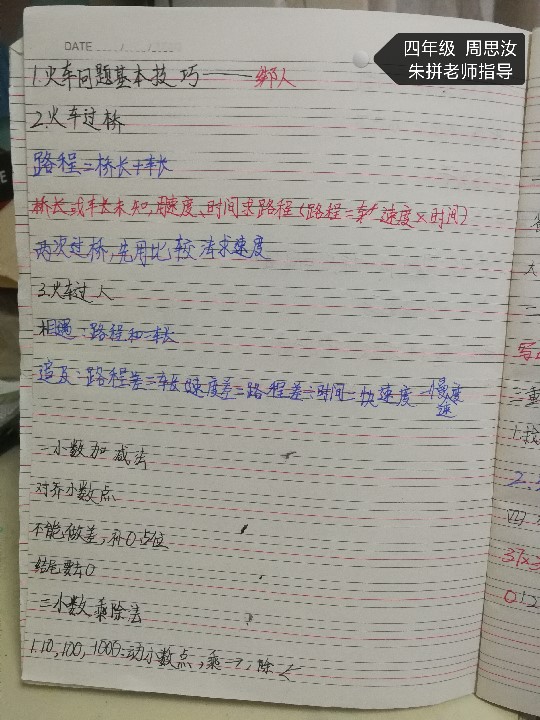 四年级 周思汝
朱拼老师指导
DATE
1.火车问题基本技巧——绑人
2.火车过桥
路程=桥长+车长
桥长或车长未知,用速度、时间求路程(路程=速度×时间)
两次过桥,先用比较法求速度
3.火车过人
相遇:路程和=车长
追及:路程差=车长 速度差=路程差÷时间=快速度-慢速度
一小数加减法
对齐小数点
不能做差,补0占位
结尾要去0
二小数乘除法
1.10,100,1000:动小数点,乘→,除←